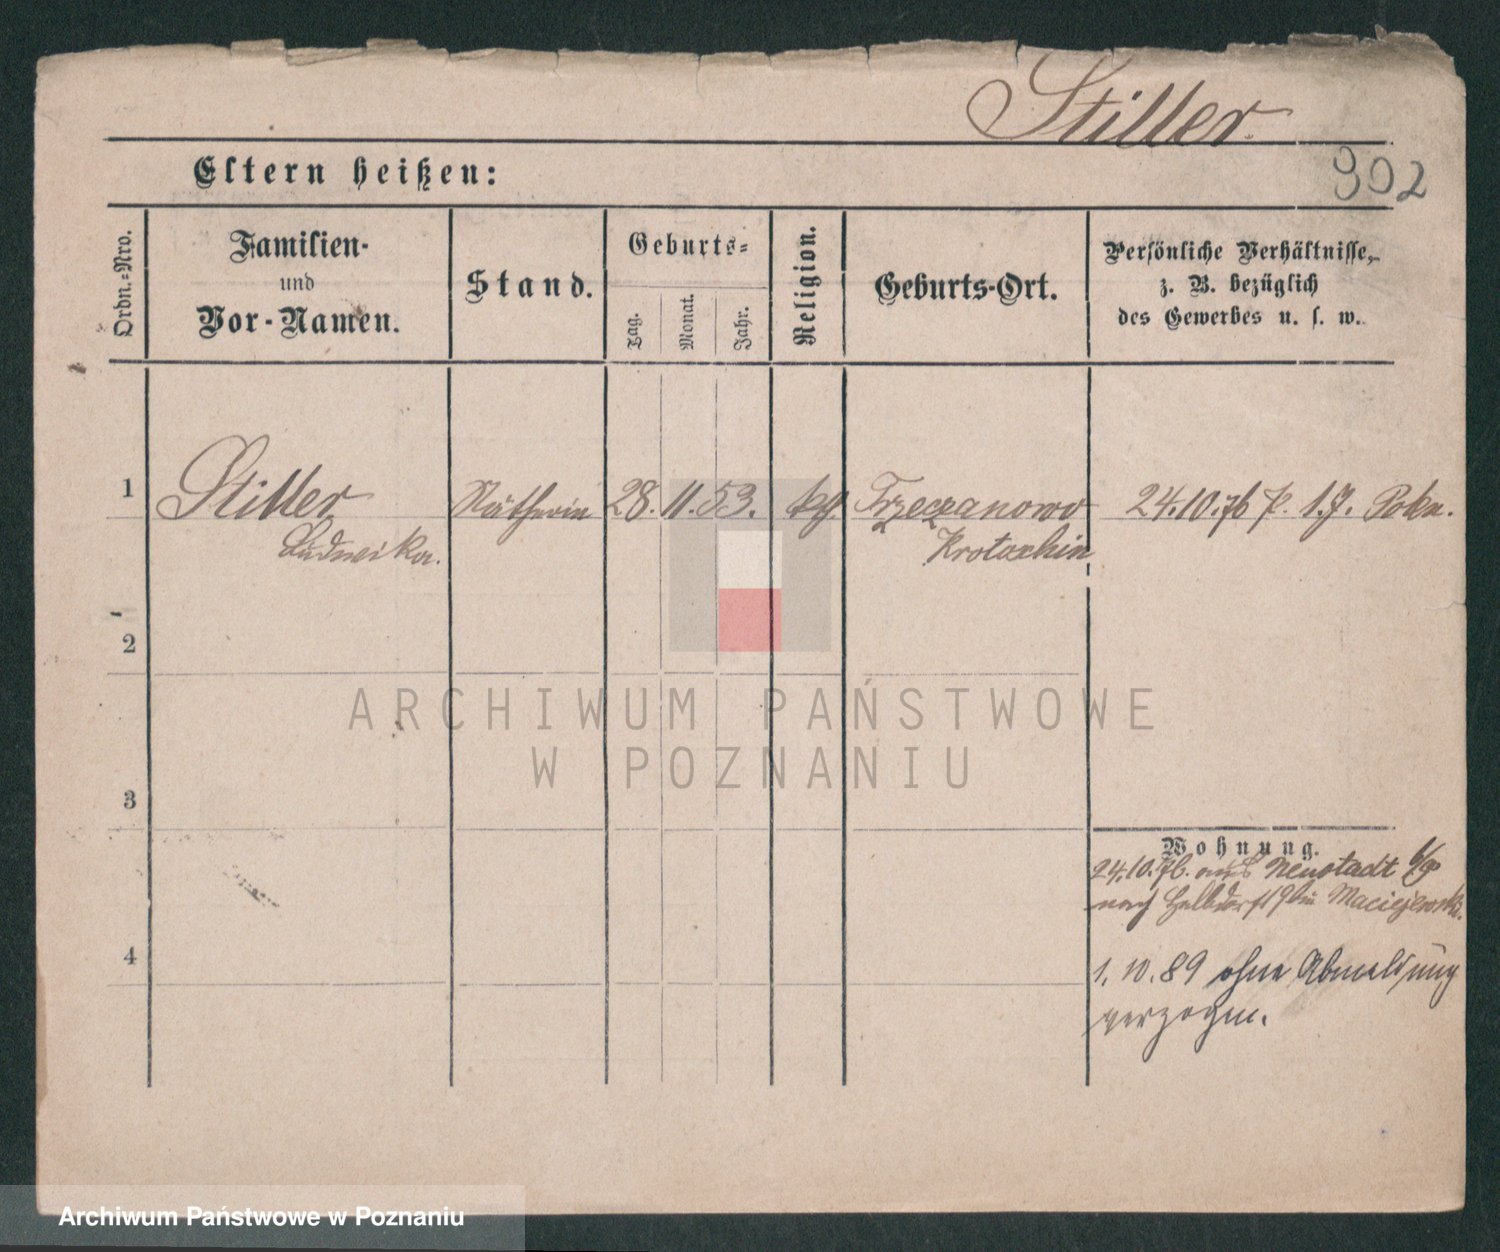 Stiller
Eltern heißen:
902
Ordn.-Nro.
Familien-
und
Vor-Namen.
Stand.
Geburts-
Tag.
Monat.
Jahr.
Religion.
Geburts-Ort.
Persönliche Verhältnisse,
z. B. bezüglich
des Gewerbes u. s. w.
1
Stiller
Ludwika.
Nätherin
28. 11. 53.
kth.
Trzeczanowo
Krotoschin
24.10.76 P. 1.J.
2
3
4
Wohnung.
24.10.76. aus Neustadt b/P
nach Halbdorfst Maciejewski.
1. 10. 89 ohne Abmeldung
verzogen.
ARCHIWUM PAŃSTWOWE
W POZNANIU
Archiwum Państwowe w Poznaniu